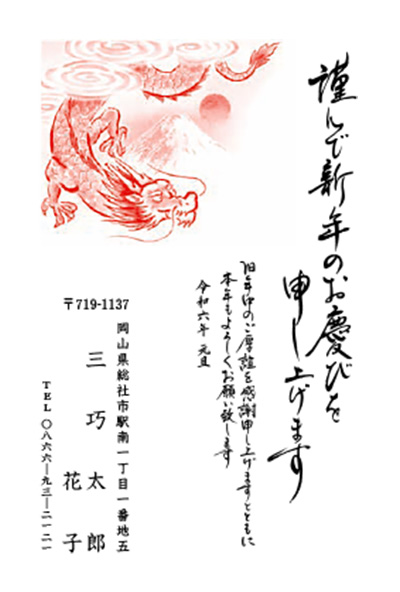 謹んで新年のお慶びを
申し上げます
旧年中のご厚誼を感謝申し上げますとともに
本年もよろしくお願い致します
令和六年 元旦
〒719-1137
岡山県総社市駅南一丁目一番地五
三 巧 太 郎
花 子
TEL 〇八六六―九三―二一二一